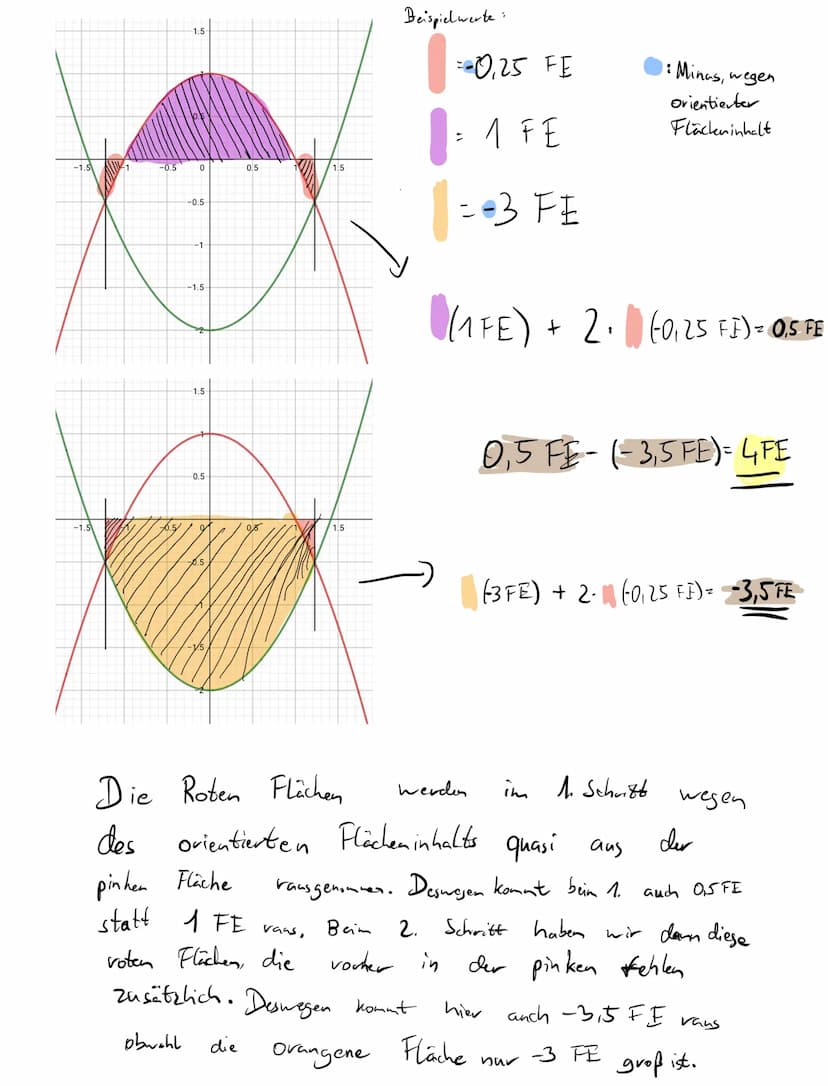 Beispielwerte:
= -0,25 FE
: Minus, wegen
orientierter
Flächeninhalt
= 1 FE
= -3 FE
1.5
1
0.5
-1.5 -1 -0.5 0 0.5 1 1.5
-0.5
-1
-1.5
-2
(1 FE) + 2 · (-0,25 FE) = 0,5 FE
1.5
1
0.5
-1.5 -1 -0.5 0 0.5 1 1.5
-0.5
-1
-1.5
-2
0,5 FE - (-3,5 FE) = 4 FE
(-3 FE) + 2 · (-0,25 FE) = -3,5 FE
Die Roten Flächen werden im 1. Schritt wegen
des orientierten Flächeninhalts quasi aus der
pinken Fläche rausgenommen. Deswegen kommt beim 1. auch 0,5 FE
statt 1 FE raus. Beim 2. Schritt haben wir dann diese
roten Flächen, die vorher in der pinken fehlen
zusätzlich. Deswegen kommt hier auch -3,5 FE raus
obwohl die orangene Fläche nur -3 FE groß ist.